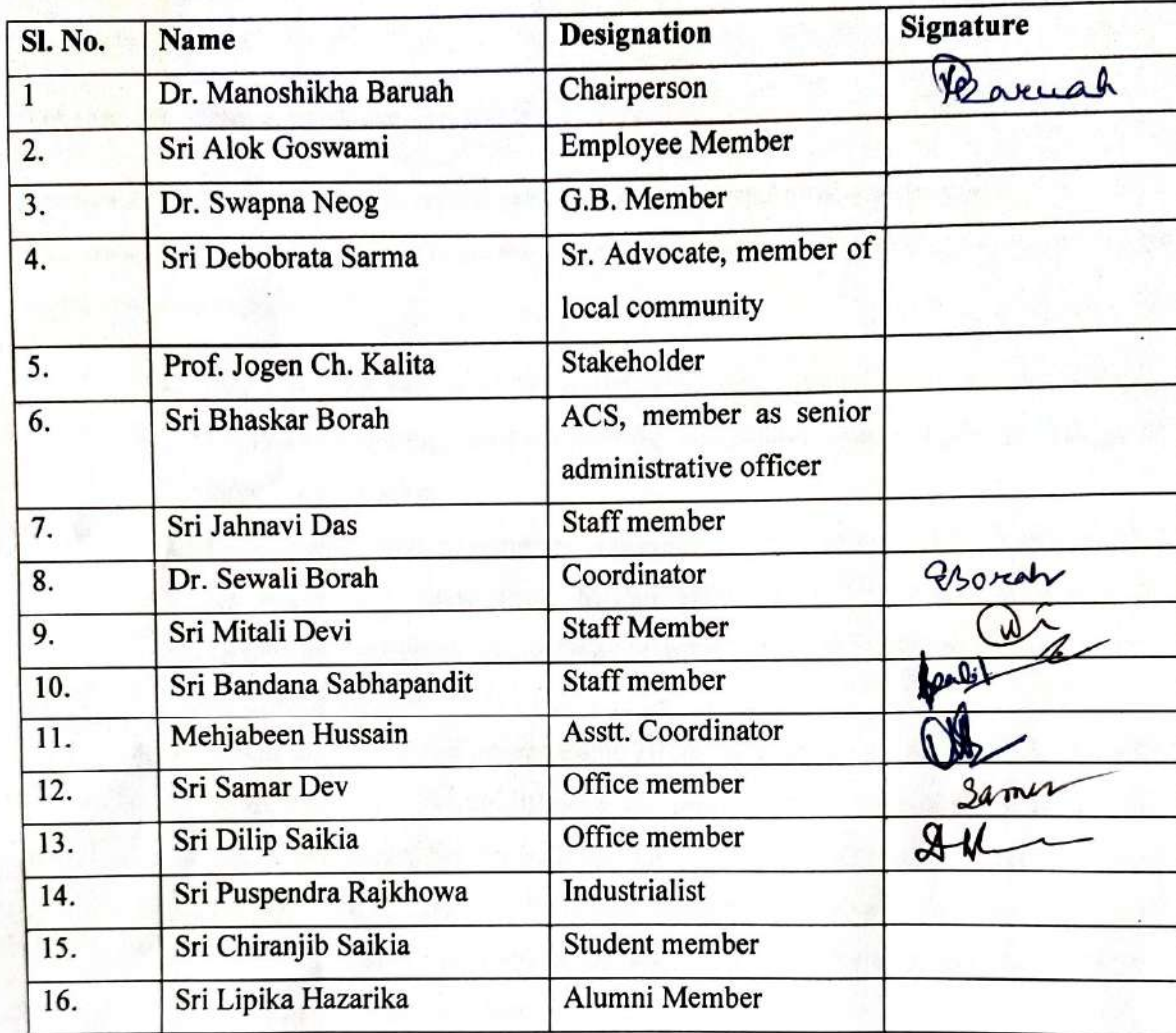 Sl. No. Name Designation Signature
1 Dr. Manoshikha Baruah Chairperson Baruah
2. Sri Alok Goswami Employee Member
3. Dr. Swapna Neog G.B. Member
4. Sri Debobrata Sarma Sr. Advocate, member of
local community
5. Prof. Jogen Ch. Kalita Stakeholder
6. Sri Bhaskar Borah ACS, member as senior
administrative officer
7. Sri Jahnavi Das Staff member
8. Dr. Sewali Borah Coordinator SBorah
9. Sri Mitali Devi Staff Member
10. Sri Bandana Sabhapandit Staff member
11. Mehjabeen Hussain Asstt. Coordinator
12. Sri Samar Dev Office member Samar
13. Sri Dilip Saikia Office member
14. Sri Puspendra Rajkhowa Industrialist
15. Sri Chiranjib Saikia Student member
16. Sri Lipika Hazarika Alumni Member